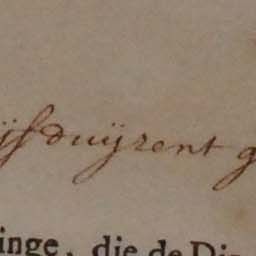 ijsduijzent g
inge, die de Din